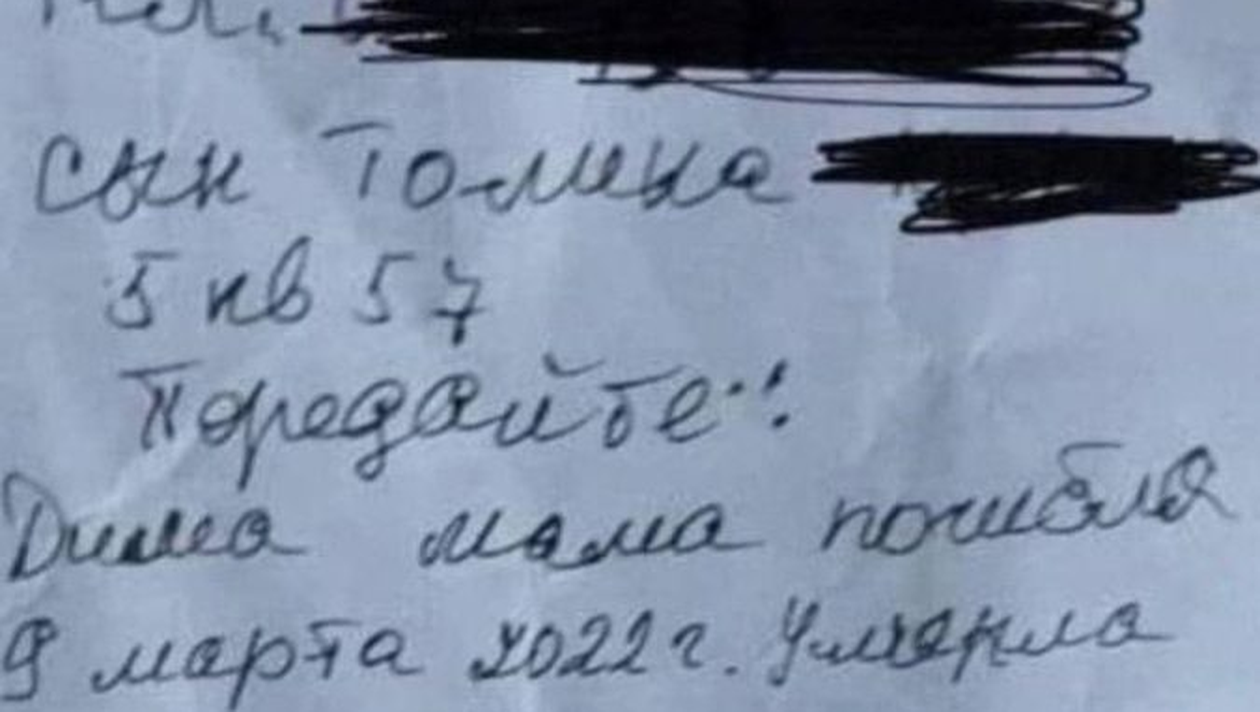 тел.
сын Толика
5 кв 57
Передайте!
Дима мама погибла
9 марта 2022 г. Умерла